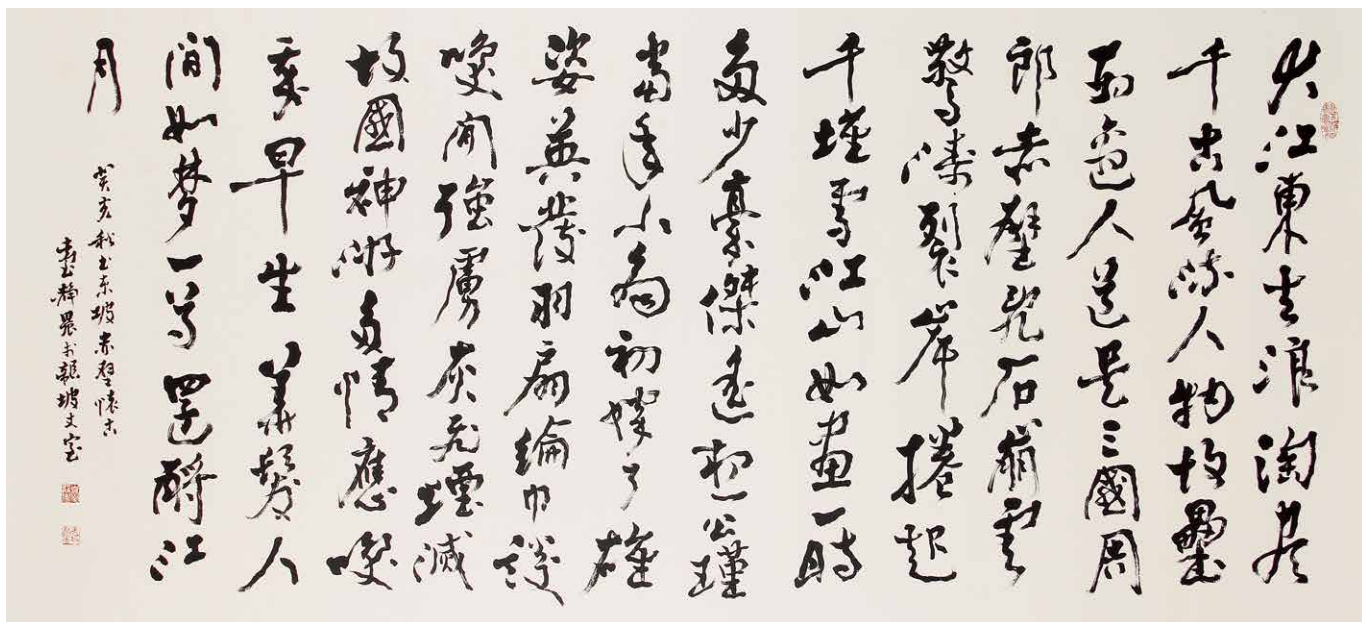 大江東去浪淘盡
千古風流人物故壘
西邊人道是三國周
郎赤壁亂石崩雲
驚濤裂岸捲起
千堆雪江山如畫一時
多少豪傑遙想公瑾
當年小喬初嫁了雄
姿英發羽扇綸巾談
咲間強虜灰飛煙滅
故國神游多情應咲
我早生華髮人
間如夢一尊還酹江
月
癸亥秋書東坡赤壁懷古
臺靜農於龍坡丈室